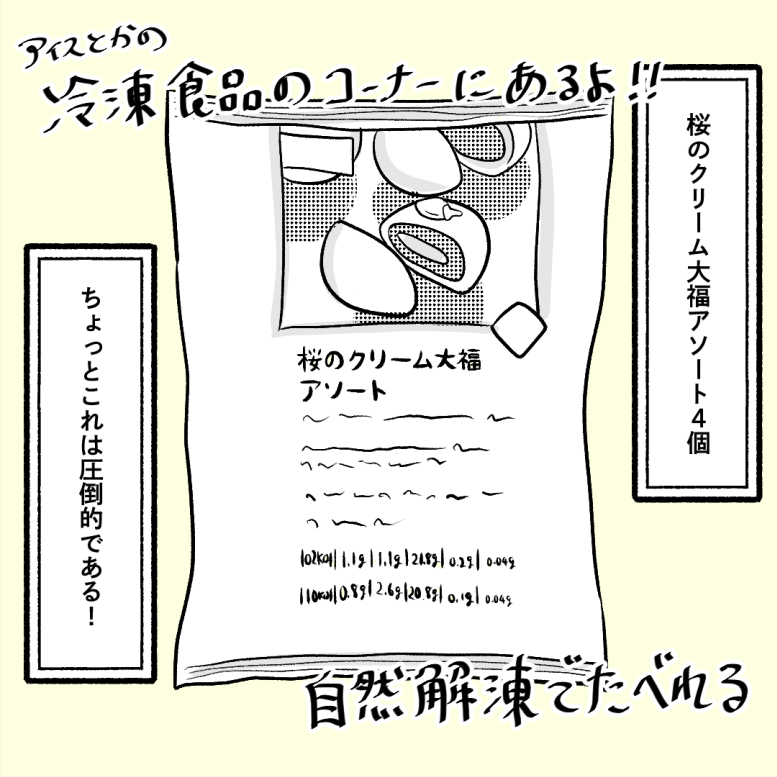 アイスとかの
冷凍食品のコーナーにあるよ!!
桜のクリーム大福アソート4個
桜のクリーム大福
アソート
102kcal|1.1g|1.1g|21.8g|0.2g|0.04g
110kcal|0.8g|2.6g|20.8g|0.1g|0.04g
ちょっとこれは圧倒的である！
自然解凍でたべれる